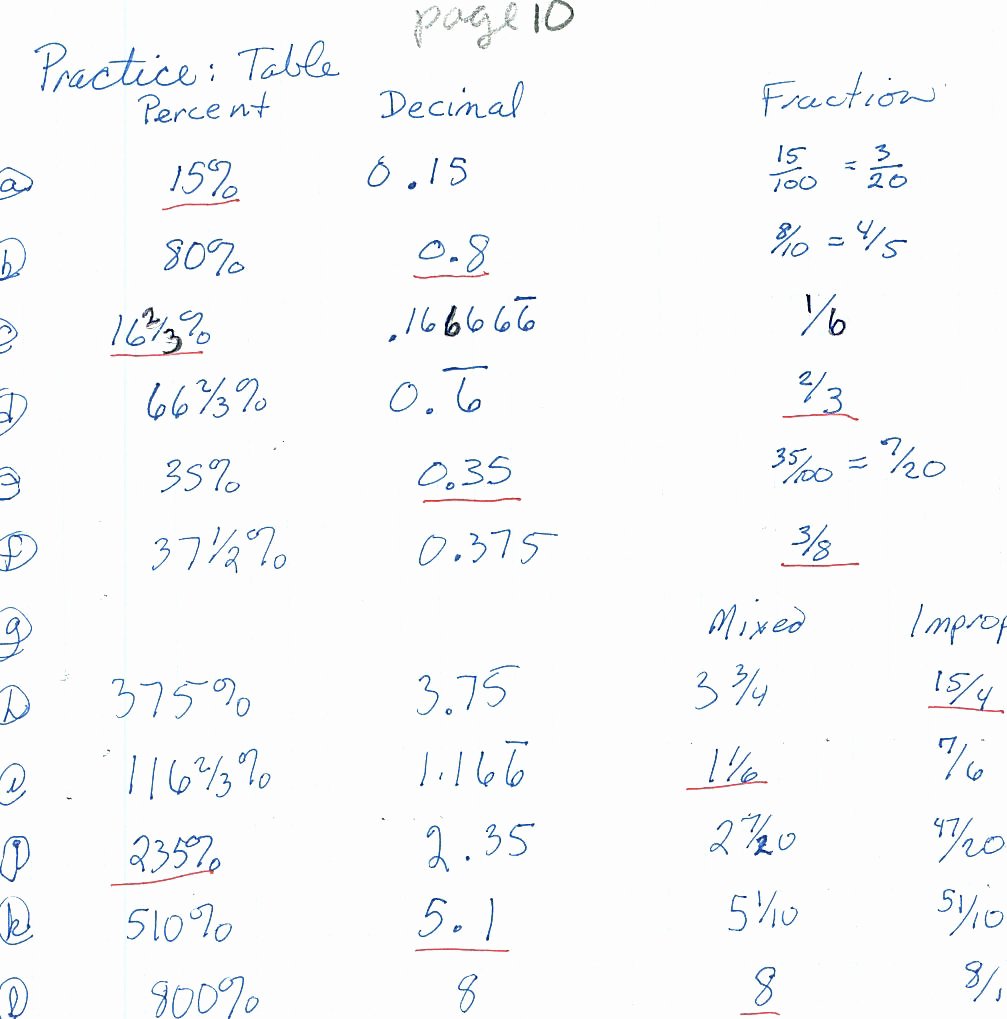 page 10
Practice: Table
Percent Decimal Fraction
ⓐ 15% 0.15 15/100 = 3/20
ⓑ 80% 0.8 8/10 = 4/5
ⓒ 16 2/3% .166666̅ 1/6
ⓓ 66 2/3% 0.6̅ 2/3
ⓔ 35% 0.35 35/100 = 7/20
ⓕ 37 1/2% 0.375 3/8
ⓖ Mixed Improp
ⓗ 375% 3.75 3 3/4 15/4
ⓘ 116 2/3% 1.166̅ 1 1/6 7/6
ⓙ 235% 2.35 2 7/20 47/20
ⓚ 510% 5.1 5 1/10 51/10
ⓛ 800% 8 8 8/